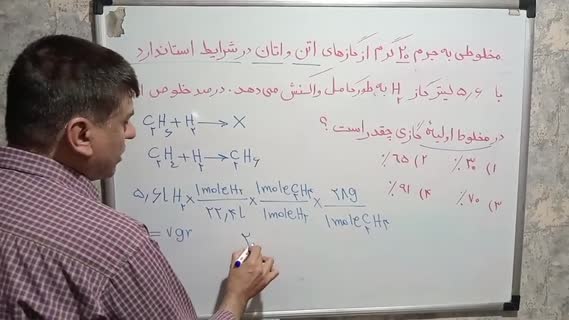 مخلوطی به جرم ۲۰ گرم از گازهای اتن و اتان در شرایط استاندارد
با ۵٫۶ لیتر گاز H₂ به طور کامل واکنش می‌دهد. درصد خلوص ا
در مخلوط اولیهٔ گازی چقدر است؟
۱) ۳۰٪ ۲) ۶۵٪
۳) ۷۰٪ ۴) ۹۱٪
C₂H₆ + H₂ → X
C₂H₄ + H₂ → C₂H₆
۵٫۶L H₂ × 1mole H₂ / ۲۲٫۴L × 1mole C₂H₄ / 1mole H₂ × ۲۸g / 1mole C₂H₄
= ۷gr
۲